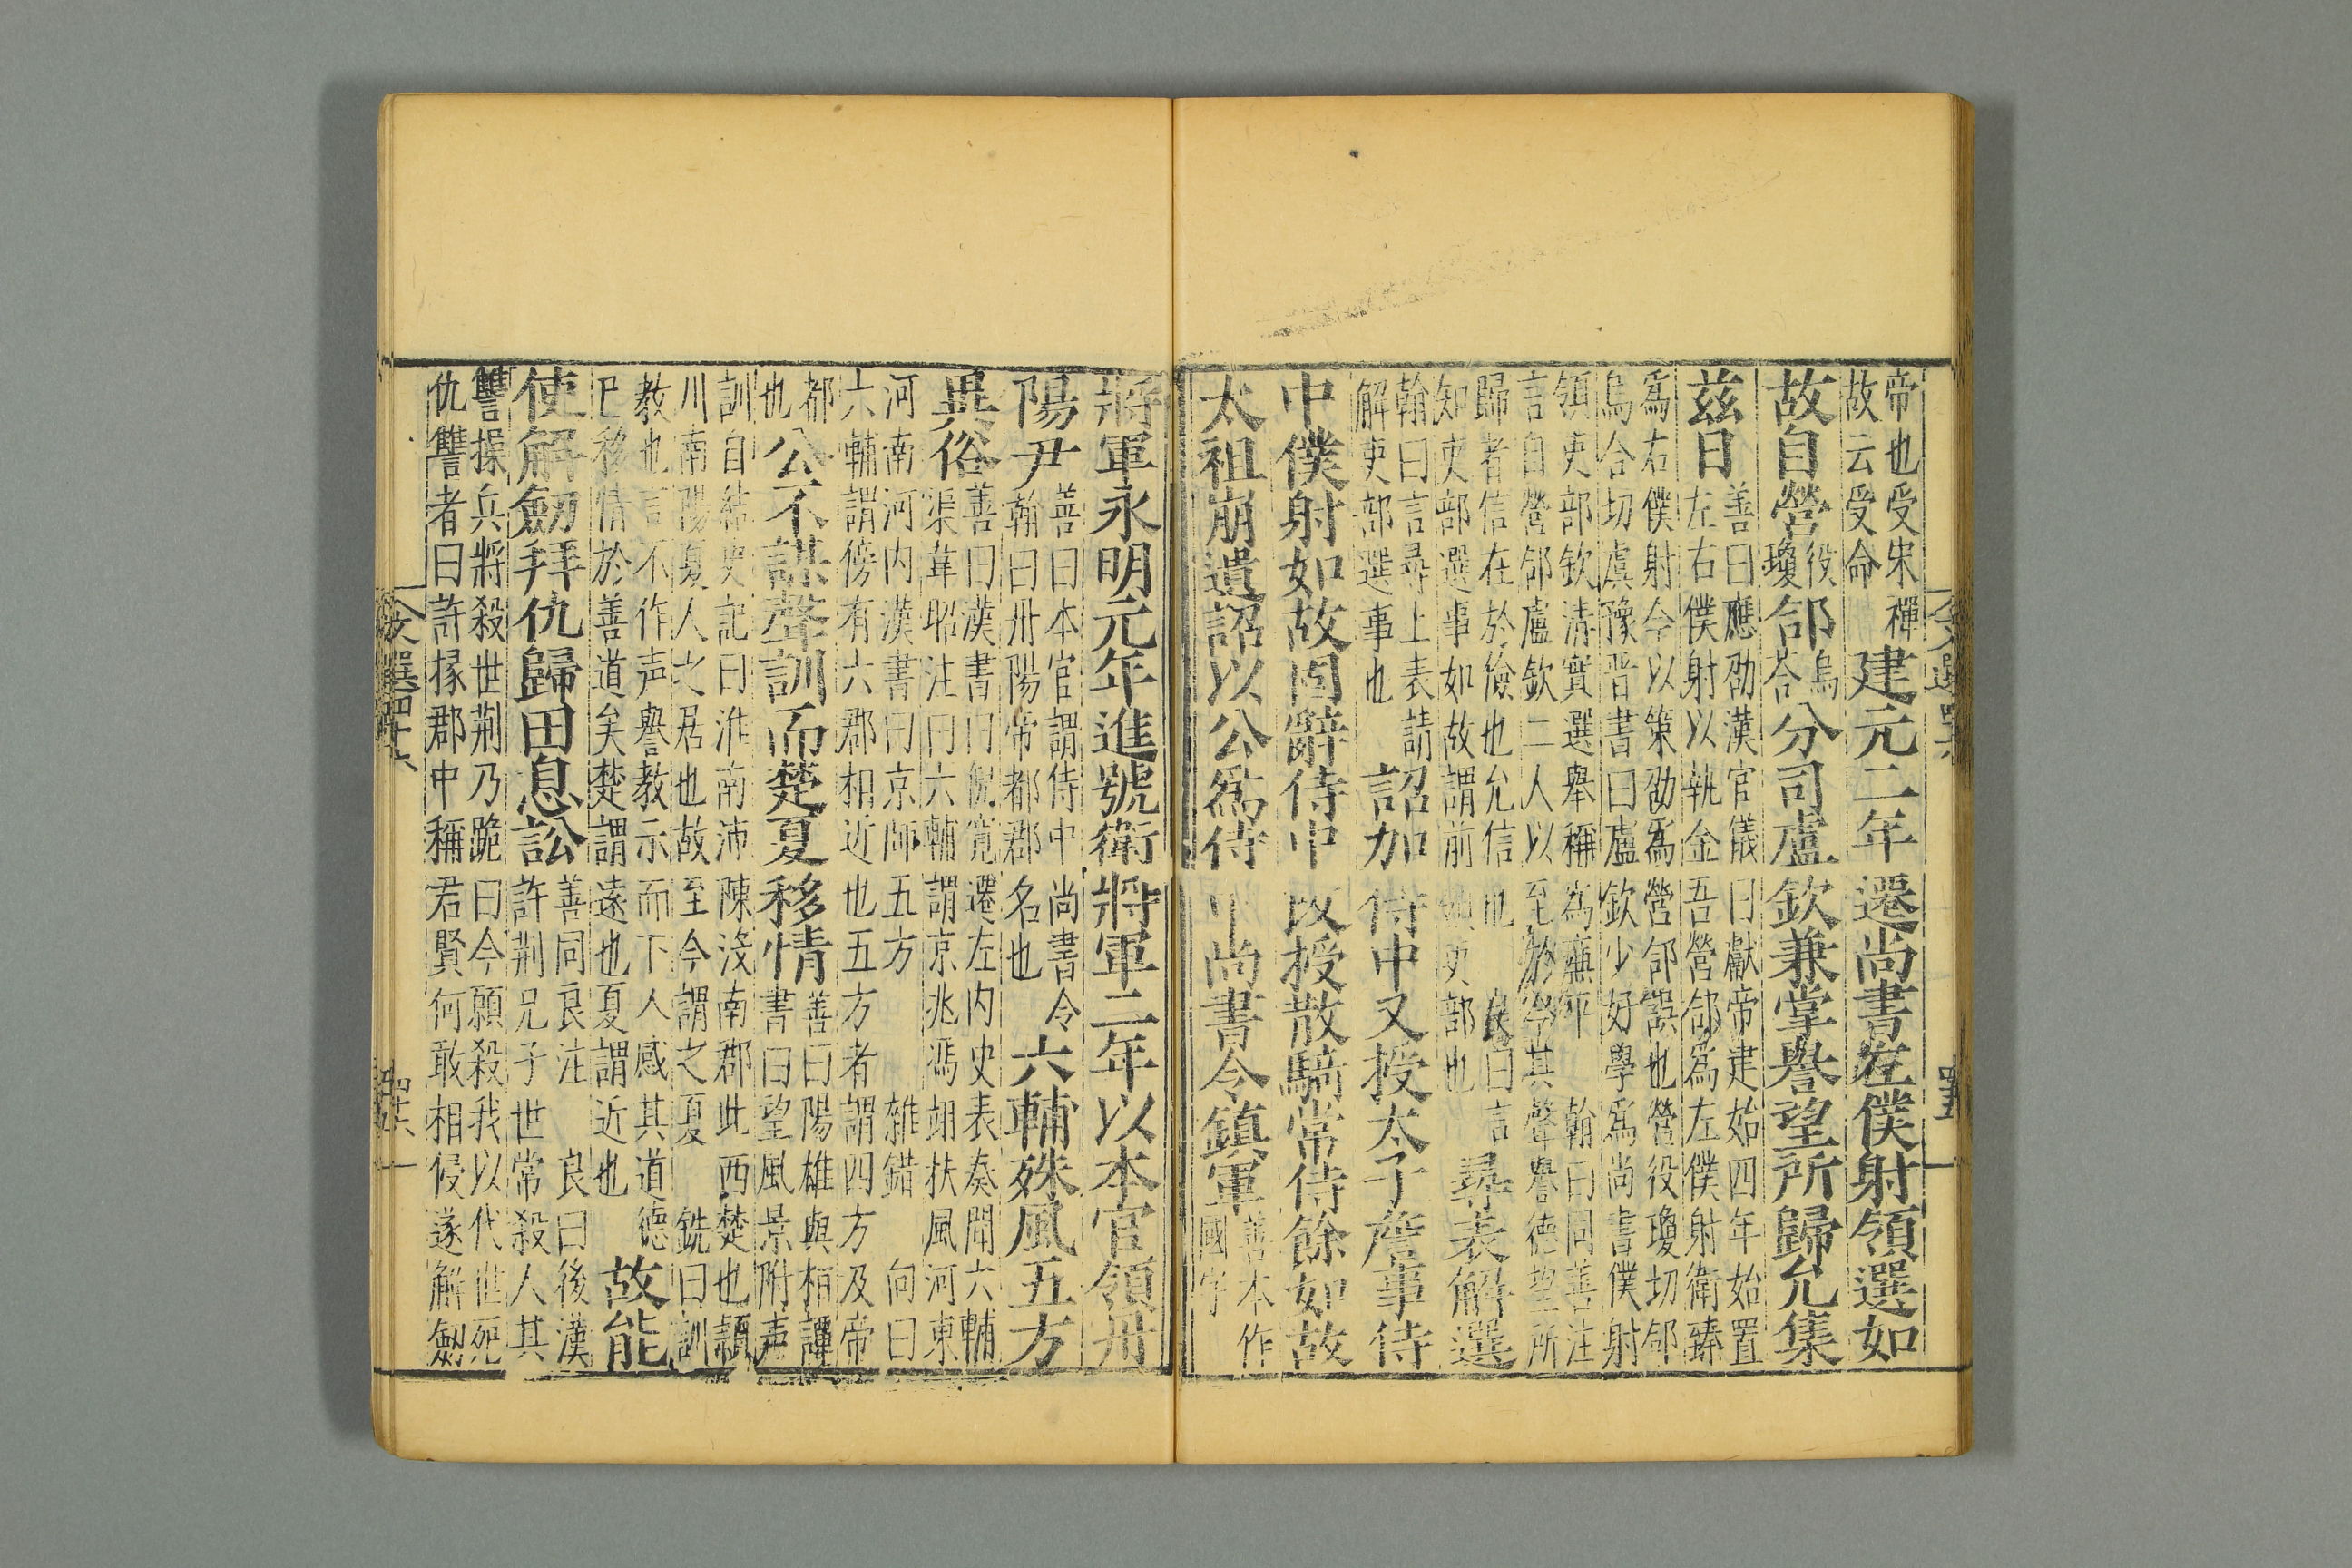 帝也受宋禪
故云受命
建元二年遷尚書左僕射領選如
故自營役瓊郃烏荅分司盧欽兼掌譽望所歸允集
茲日
善曰應劭漢官儀曰獻帝建始四年始置
左右僕射以執金吾營郃為左僕射衛臻
為右僕射今以策劭為營郃誤也營役瓊切郃
烏合切虞豫晉書曰盧欽少好學為尚書僕射
領吏部欽清實選舉稱為廉平翰曰同善注
言自營郃盧欽二人以至於今其聲譽德望所
歸者信在於儉也允信也良曰言
知吏部選事如故謂前領吏部也
尋表解選
翰曰言尋上表請
解吏部選事也
詔加侍中又授太子詹事侍
中僕射如故固辭侍中改授散騎常侍餘如故
太祖崩遺詔以公為侍中尚書令鎮軍
善本作
國字
將軍永明元年進號衛將軍二年以本官領丹
陽尹
善曰本官謂侍中尚書令
翰曰丹陽帝都郡名也
六輔殊風五方
異俗
善曰漢書曰倪寬遷左內史表奏開六輔
渠韋昭注曰六輔謂京兆馮翊扶風河東
河南河內漢書曰京師五方雜錯向曰
六輔謂傍有六郡相近也五方者謂四方及帝
都
也
公不謀聲訓而楚夏移情
善曰陽雄與桓譚
書曰望風景附声
訓自結史記曰淮南沛陳汝南郡此西楚也潁
川南陽夏人之居也故至今謂之夏銑曰訓
教也言不作声譽教示而下人感其道德
已移情於善道矣楚謂遠也夏謂近也
故能
使解劒拜仇歸田息訟
善同良注良曰後漢
許荆兄子世常殺人其
讐操兵將殺世荆乃跪曰今願殺我以代世死
仇讐者曰許掾郡中稱君賢何敢相侵遂解劒
文選四十六